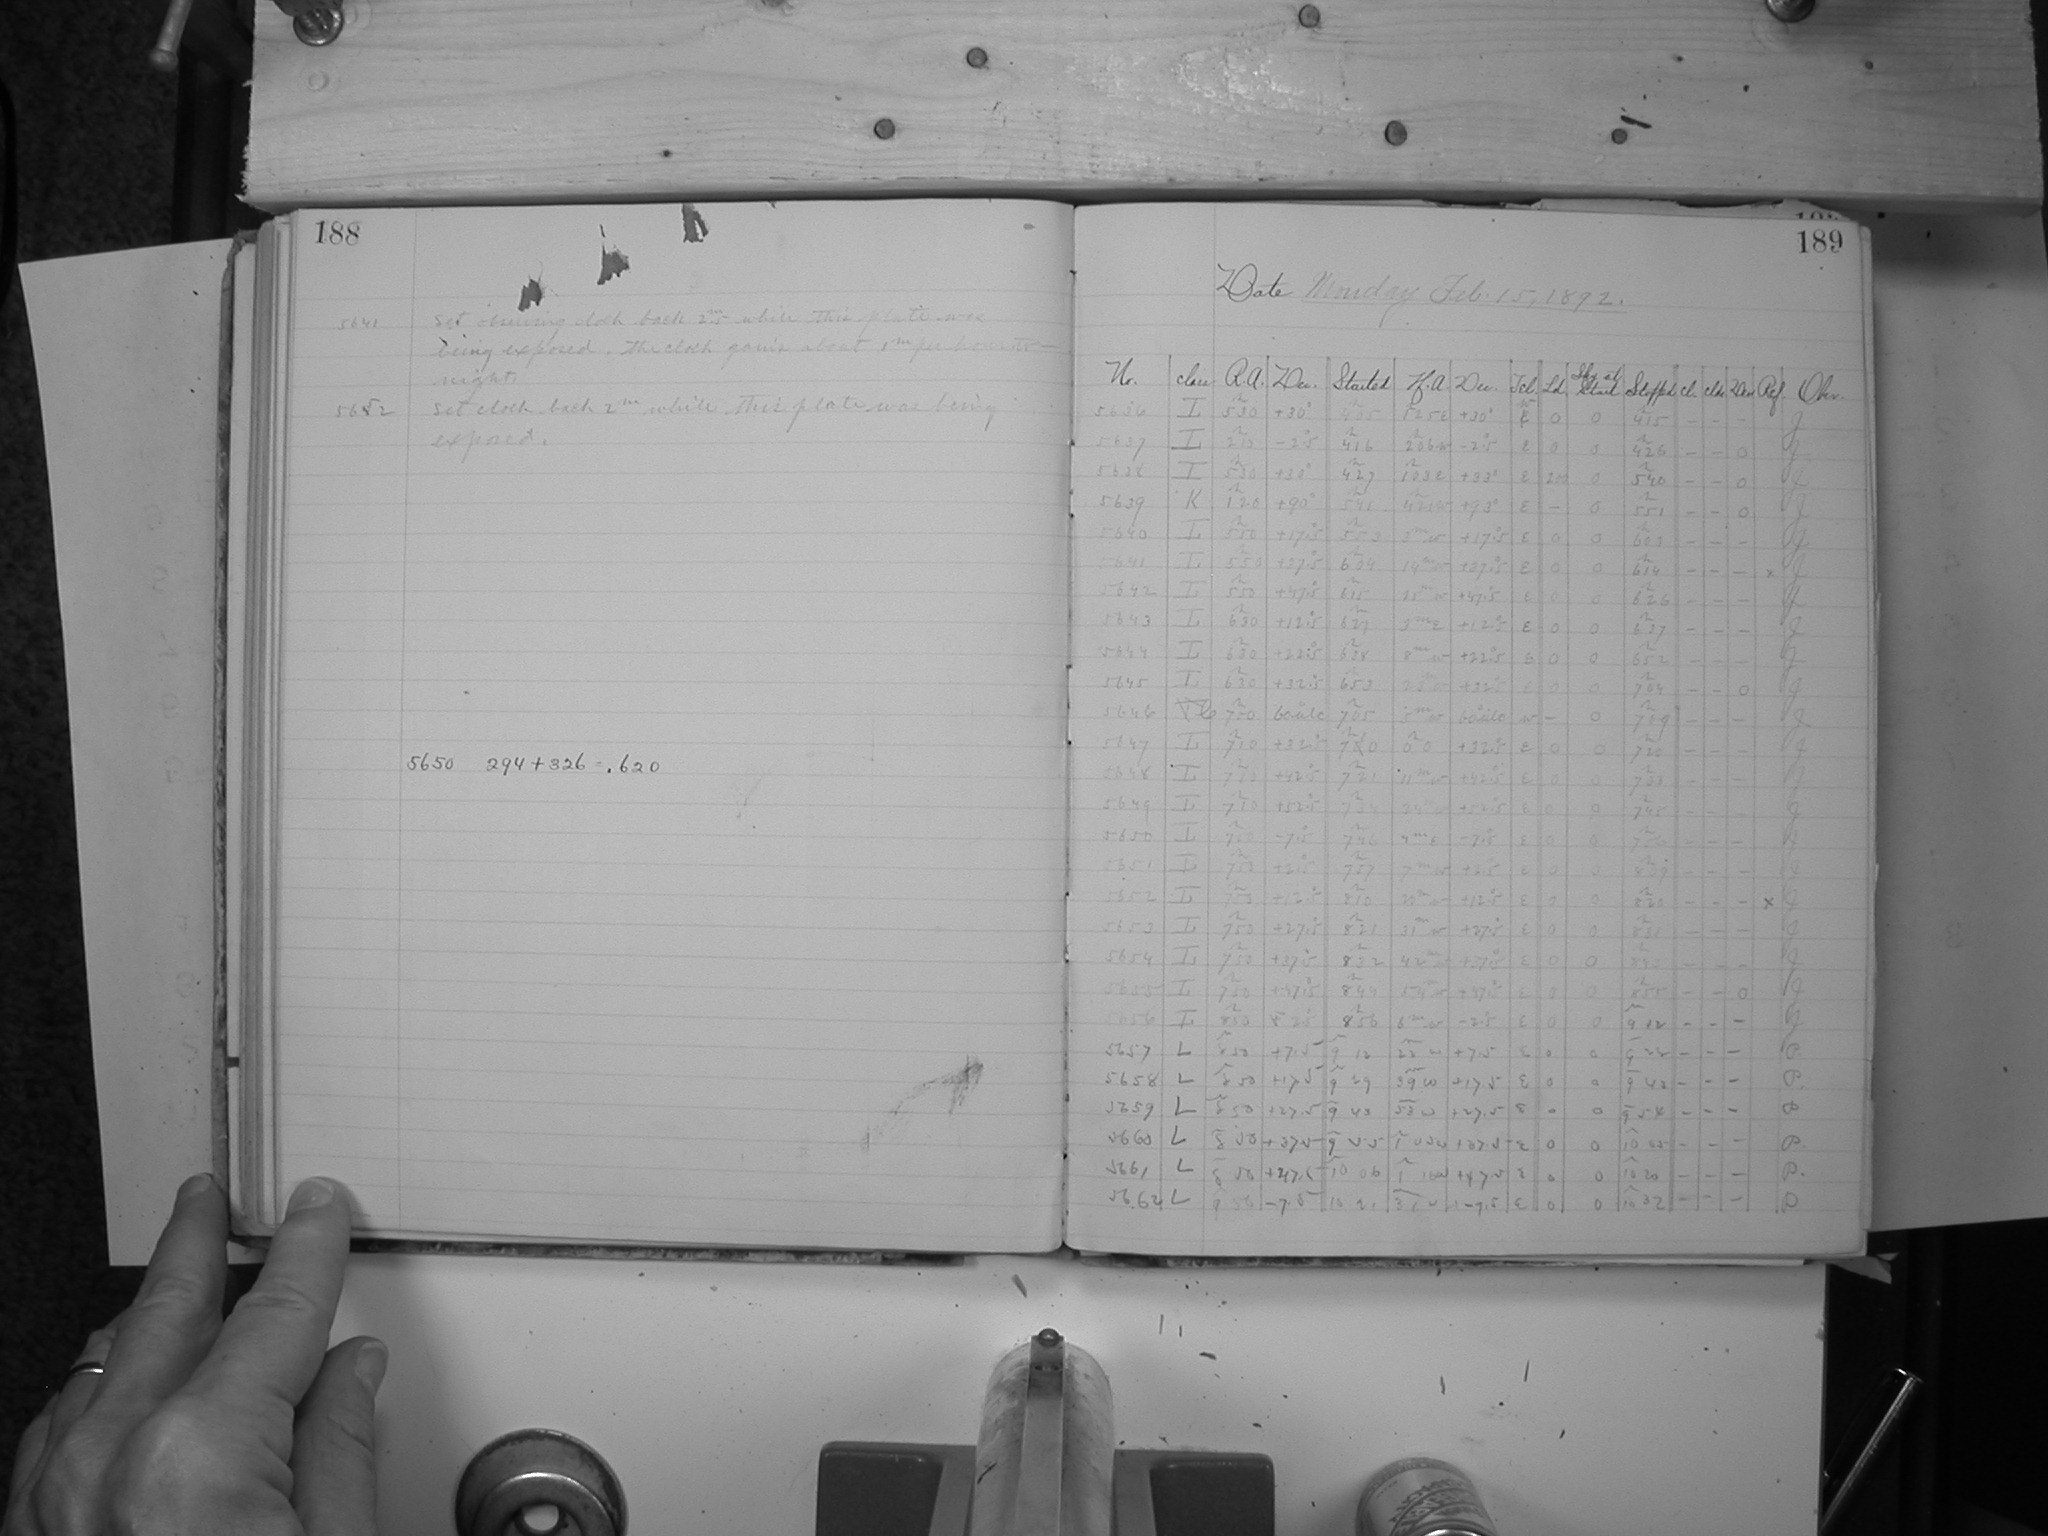 188
5641 Set observing clock back 2m.5 while this plate was
being exposed. The clock gains about 1m per hour to-
night.
5652 Set clock back 2m while this plate was being
exposed.
5650 294+326=.620
189
Date Monday Feb. 15, 1892.
No. class R.A. Dec. Started H.A. Dec. Tel. Ld. Sky at Start Stopped cl. Dew Ref. Obsr.
5636 L 5h30 +30° +30° 0 0 4h15 - - - J
5637 L 2h10 -2°.5 4h16 2h06w -2°.5 E 0 0 4h26 - - 0 J
5638 L 5h30 +30° 4h27 1h03E +33° E 0 5h40 - - 0 J
5639 K 1h20 +90° 5h41 4h21w +93° E - 0 5h51 - - 0 J
5640 L 5h50 +17°.5 5h53 3m w +17°.5 E 0 0 6h03 - - - J
5641 L 5h50 +37°.5 6h04 14m w +37°.5 E 0 0 6h14 - - - x J
5642 L 5h50 +47°.5 6h15 25m w +47°.5 E 0 0 6h26 - - - J
5643 L 6h30 +12°.5 6h27 3m E +12°.5 E 0 0 6h37 - - - J
5644 L 6h30 +22°.5 6h38 8m w +22°.5 E 0 0 6h52 - - - J
5645 L 6h30 +32°.5 6h53 +32°.5 E 0 0 7h04 - - 0 J
5646 7h00 7h05 5m w w - 0 7h09 - - - J
5647 L 7h10 +32°.5 7h10 0h0 +32°.5 E 0 0 7h20 - - - J
5648 L 7h10 +42°.5 7h21 11m w +42°.5 E 0 0 7h33 - - - J
5649 L 7h10 +52°.5 7h34 24m w +52°.5 E 0 0 7h45 - - - J
5650 L 7h50 -7°.5 7h46 4m E -7°.5 E 0 0 7h56 - - - J
5651 L 7h50 +2°.5 7h57 7m w +2°.5 E 0 0 8h09 - - - J
5652 L 7h50 +12°.5 8h10 20m w +12°.5 E 0 0 8h20 - - - x J
5653 L 7h50 +27°.5 8h21 31m w +27°.5 E 0 0 8h31 - - - J
5654 L 7h50 +37°.5 8h32 42m w +37°.5 E 0 0 - - - J
5655 L 7h50 +47°.5 8h44 54m w +47°.5 E 0 0 8h55 - - 0 J
5656 L 8h50 -2°.5 8h56 6m w -2°.5 E 0 0 9h12 - - - J
5657 L 8h50 +7.5 22 w +7.5 E 0 0 - - -
5658 L 8h50 +17.5 9h29 39 w +17.5 E 0 0 9h42 - - -
5659 L 8h50 +27.5 9h43 53 w +27.5 E 0 0 9h54 - - -
5660 L 8h50 +37.5 9h55 1h05w +37.5 E 0 0 10h05 - - -
5661 L 8h50 +47.5 10h06 1h16w +47.5 E 0 0 10h20 - - -
5662 L 9h50 -7.5 10h21 31 w -7.5 E 0 0 10h32 - - -